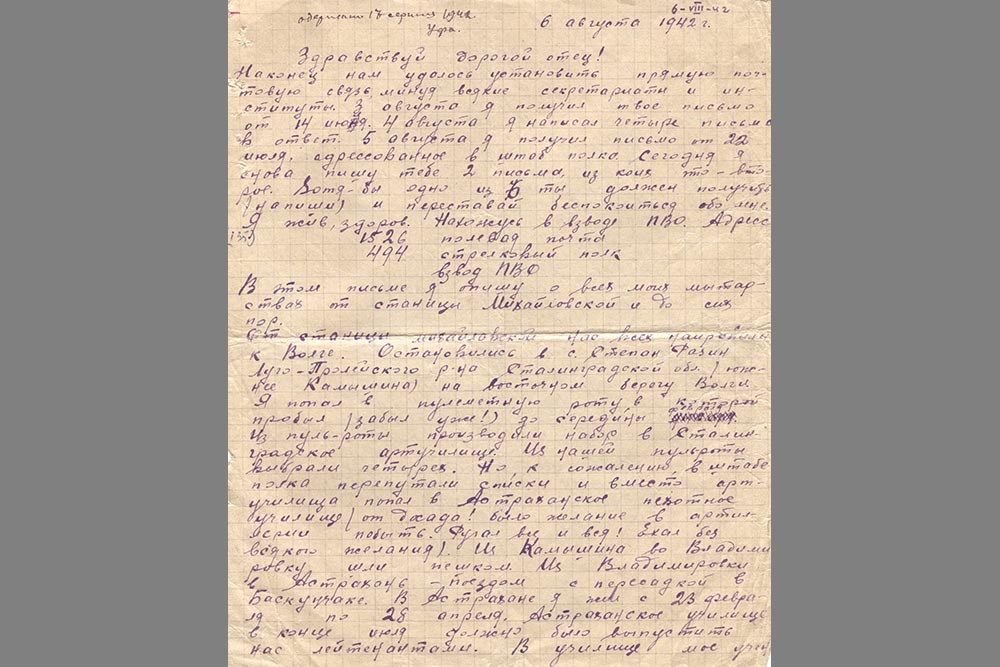 6-VIII-42
одержано 17 серпня 1942.
Уфа.
6 августа 1942 г.
Здравствуй дорогой отец!
Наконец нам удалось установить прямую поч-
товую связь, минуя всякие секретариаты и ин-
ституты. 3 августа я получил твое письмо
от 14 июля. 4 августа я написал четыре письма
в ответ. 5 августа я получил письмо от 22
июля, адрессованное в штаб полка. Сегодня я
снова пишу тебе 2 письма, из коих это - вто-
рое. Хотя-бы одно из 6 ты должен получить
(напиши) и переставай беспокоиться обо мне.
Я жив, здоров. Нахожусь в взводе ПВО. Адресс
1526 полевая почта
494 стрелковый полк
взвод ПВО
В этом письме я опишу о всех моих мытар-
ствах от станицы Михайловской и до сих
пор.
От станицы Михайловской нас всех направили
к Волге. Остановились в с. Степан Разин
Луго-Пролейского р-на Сталинградской обл. (юж-
нее Камышина) на восточном берегу Волги
Я попал в пулеметную роту в которой
пробыл (забыл уже!) до середины февраля
Из пуль-роты производили набор в Сталин-
градское артучилище. Из нашей пульроты
выбрали четырех. Но к сожалению, в штабе
полка перепутали списки и вместо арт-
училища попал в Астраханское пехотное
училище (от досада! было желание в артил-
лерии побыть. Ругал все и вся! Ехал без
всякого желания). Из Камышина во Владими
ровку шли пешком. Из Владимировки
в Астрахань - поездом с пересадкой в
Баскунчаке. В Астрахане я жил с 23 февра-
ля по 28 апреля. Астраханское училище
в конце июля должно было выпустить
нас лейтенантами. В училище мое учен